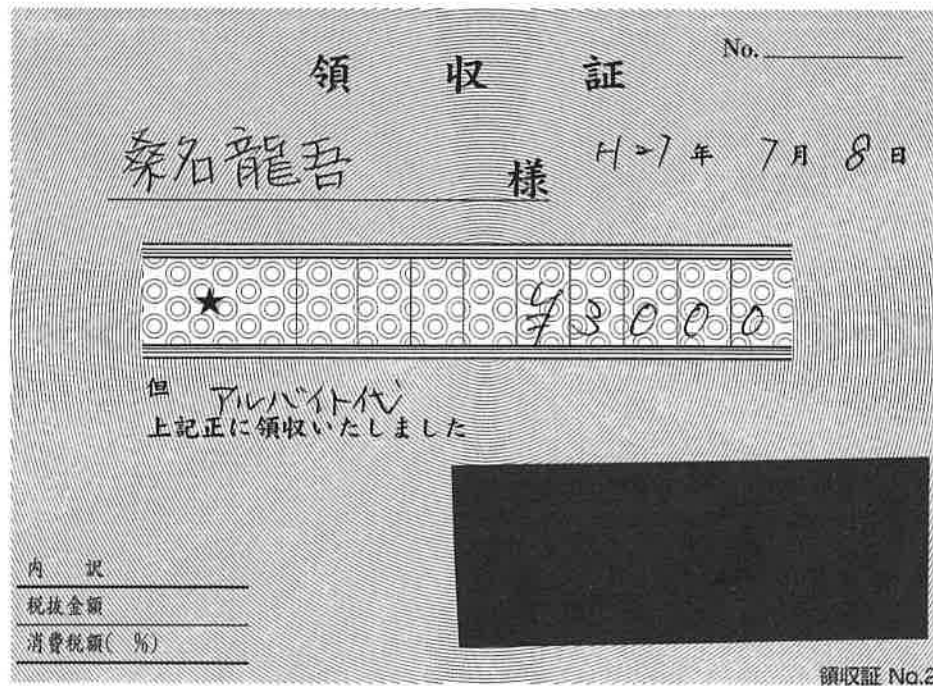 領収証
No.
桑名龍吾 様
H27年 7月 8日
★ ¥3000
但 アルバイト代
上記正に領収いたしました
内 訳
税抜金額
消費税額( %)
領収証 No.2